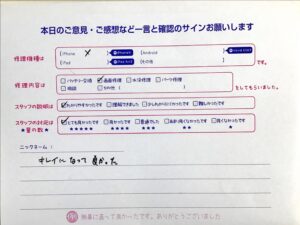 本日のご意見・ご感想など一言と確認のサインお願いします
修理機種は iPhone X Android
iPad その他 です。
修理内容は バッテリー交換 画面修理 水没修理 パーツ修理
相談 その他 をしてもらいました。
スタッフの説明は わかりやすかったです 理解できました 少しわかりにくかったです 難しかったです
スタッフの対応は とても良かったです 良かったです 普通でした あまり良くなかったです 良くなかったです
★星の数★ ★★★★★ ★★★★ ★★★ ★★ ★
ニックネーム：
キレイになって良かった
無事に直って良かったです。ありがとうございました